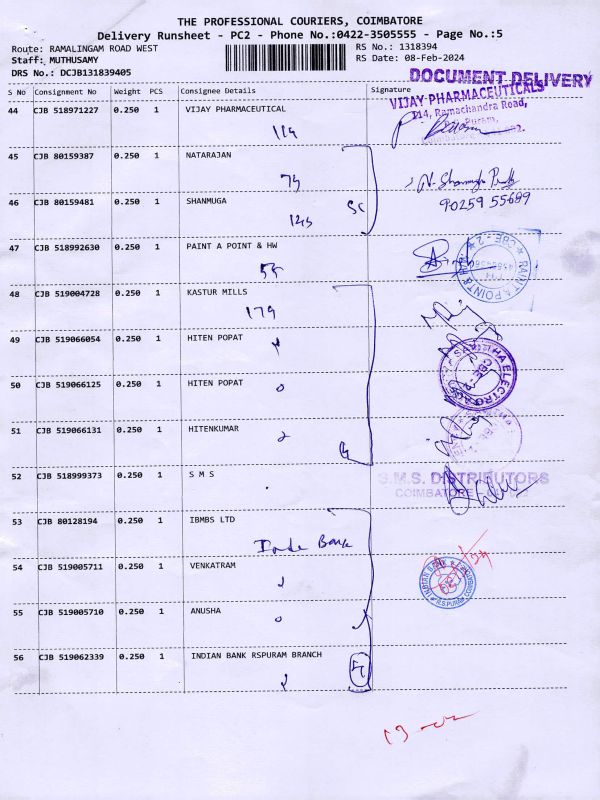 THE PROFESSIONAL COURIERS, COIMBATORE
Delivery Runsheet - PC2 - Phone No.:0422-3505555 - Page No.:5
Route: RAMALINGAM ROAD WEST
RS No.: 1318394
Staff: MUTHUSAMY
RS Date: 08-Feb-2024
DRS No.: DCJB131839405
DOCUMENT DELIVERY
S No Consignment No Weight PCS Consignee Details Signature
VIJAY PHARMACEUTICALS
114, Ramachandra Road,
Puram,
44 CJB 518971227 0.250 1 VIJAY PHARMACEUTICAL
119
45 CJB 80159387 0.250 1 NATARAJAN
46 CJB 80159481 0.250 1 SHANMUGA
90259 55689
47 CJB 518992630 0.250 1 PAINT A POINT & HW
CBE - 2
48 CJB 519004728 0.250 1 KASTUR MILLS
179
49 CJB 519066054 0.250 1 HITEN POPAT
50 CJB 519066125 0.250 1 HITEN POPAT
51 CJB 519066131 0.250 1 HITENKUMAR
52 CJB 518999373 0.250 1 S M S
S.M.S. DISTRIBUTORS
COIMBATORE
53 CJB 80128194 0.250 1 IBMBS LTD
Bank
54 CJB 519005711 0.250 1 VENKATRAM
INDIAN BANK
R.S.PURAM
55 CJB 519005710 0.250 1 ANUSHA
56 CJB 519062339 0.250 1 INDIAN BANK RSPURAM BRANCH